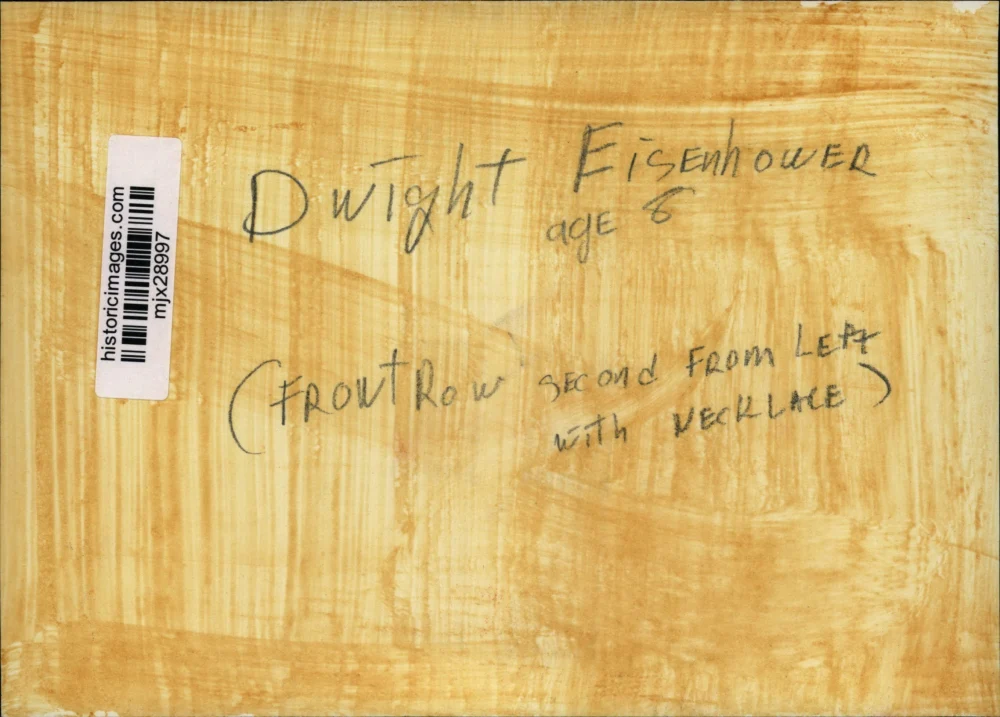 Dwight Eisenhower
age 8
(Front Row second From Left
with Necklace)
historicimages.com
mjx28997